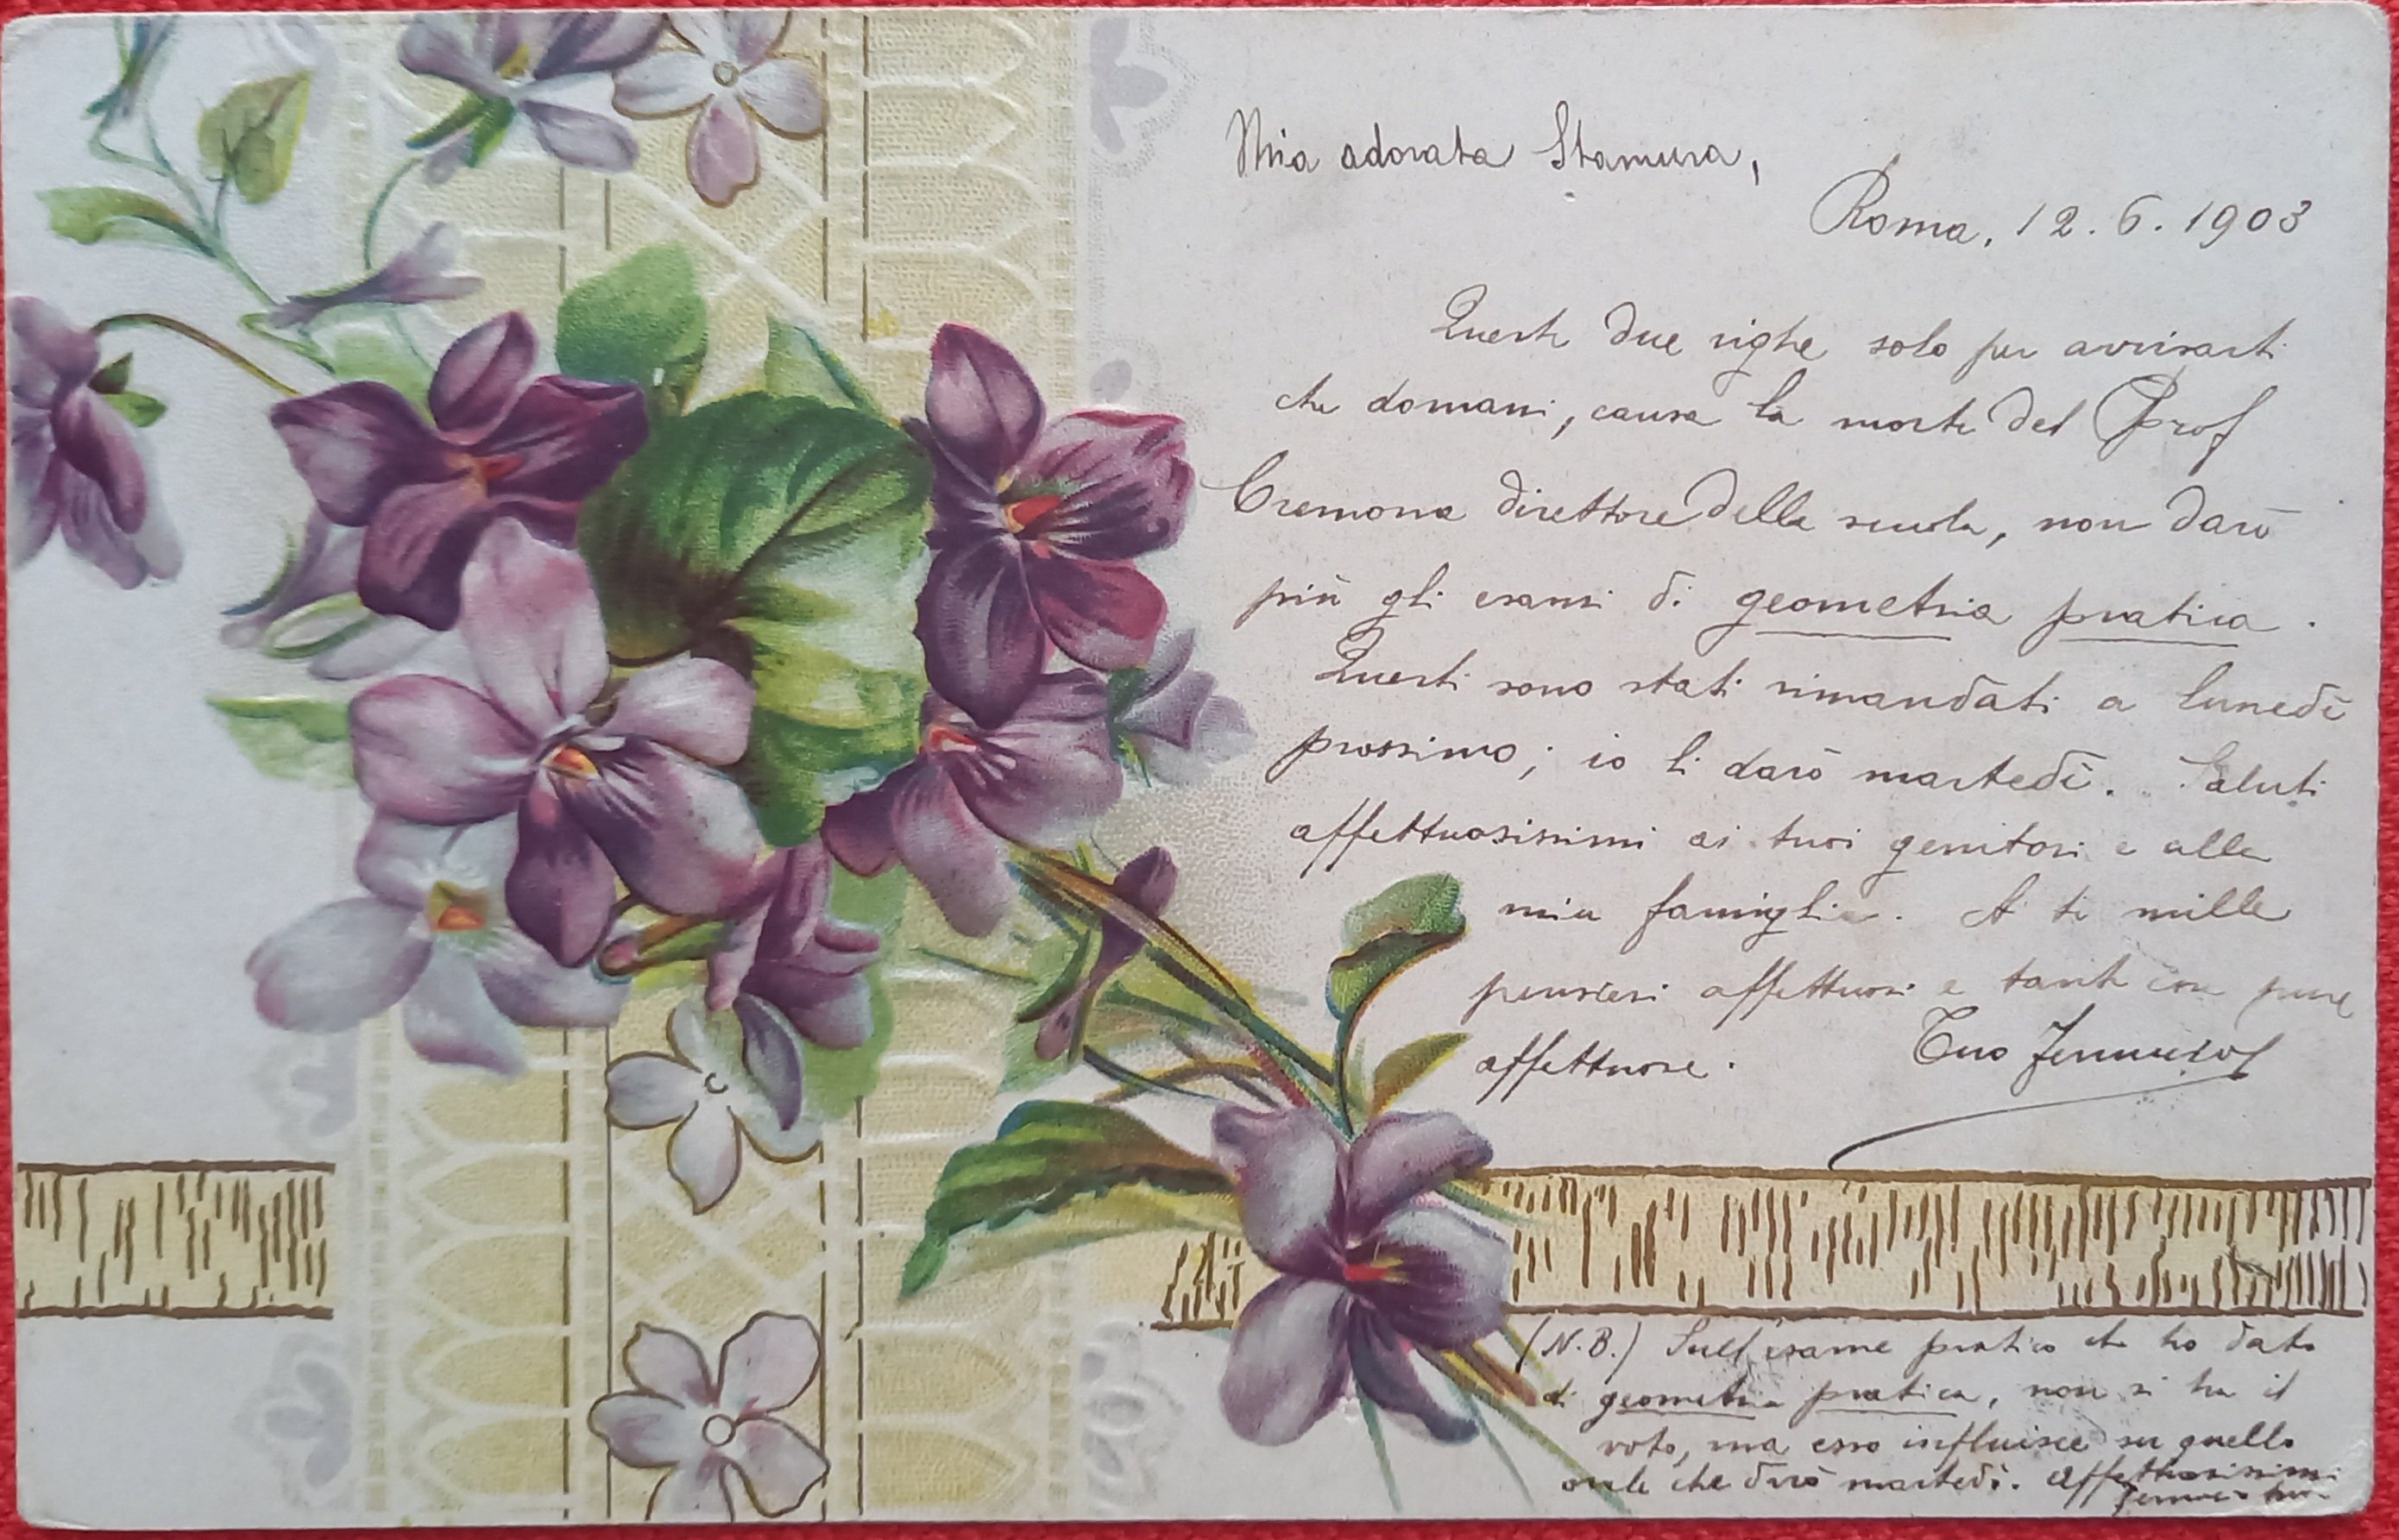 Mia adorata Stamura,
Roma, 12.6.1903
Queste due righe solo per avvisarti
che domani, causa la morte del Prof
Cremona direttore della scuola, non darò
più gli esami di geometria pratica.
Questi sono stati rimandati a lunedì
prossimo; io li darò martedì. Saluti
affettuosissimi ai tuoi genitori e alla
mia famiglia. A te mille
pensieri affettuosi e tante cose pure
affettuose. Tuo
(N.B.) Sull'esame pratico che ho dato
di geometria pratica, non si ha il
voto, ma esso influisce su quello
orale che darò martedì. Affettuosissimi